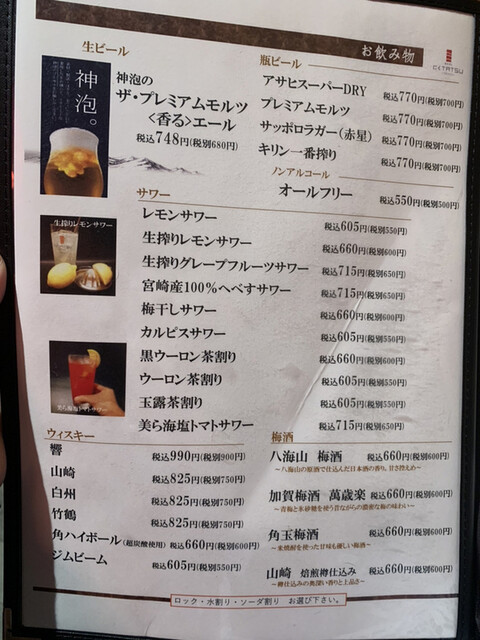 お飲み物
EKITATSU
生ビール
神泡。
神泡の
ザ・プレミアムモルツ
〈香る〉エール
税込748円(税別680円)
瓶ビール
アサヒスーパーDRY 税込770円(税別700円)
プレミアムモルツ 税込770円(税別700円)
サッポロラガー(赤星) 税込770円(税別700円)
キリン一番搾り 税込770円(税別700円)
ノンアルコール
オールフリー 税込550円(税別500円)
サワー
生搾りレモンサワー
レモンサワー 税込605円(税別550円)
生搾りレモンサワー 税込660円(税別600円)
生搾りグレープフルーツサワー 税込715円(税別650円)
宮崎産100%へべすサワー 税込715円(税別650円)
梅干しサワー 税込660円(税別600円)
カルピスサワー 税込605円(税別550円)
黒ウーロン茶割り 税込660円(税別600円)
ウーロン茶割り 税込605円(税別550円)
玉露茶割り 税込605円(税別550円)
美ら海塩トマトサワー 税込715円(税別650円)
美ら海塩トマトサワー
ウィスキー
響 税込990円(税別900円)
山崎 税込825円(税別750円)
白州 税込825円(税別750円)
竹鶴 税込825円(税別750円)
角ハイボール(超炭酸使用) 税込660円(税別600円)
ジムビーム 税込605円(税別550円)
梅酒
八海山 梅酒 税込660円(税別600円)
〜八海山の原酒で仕込んだ日本酒の香り。甘さ控えめ〜
加賀梅酒 萬歳楽 税込660円(税別600円)
〜青梅と氷砂糖を使う昔ながらの濃密な梅の味わい〜
角玉梅酒 税込660円(税別600円)
〜米焼酎を使った甘味も優しい梅酒〜
山崎 焙煎樽仕込み 税込660円(税別600円)
〜樽仕込みの奥深い香りと上品さ〜
ロック・水割り・ソーダ割り お選び下さい。